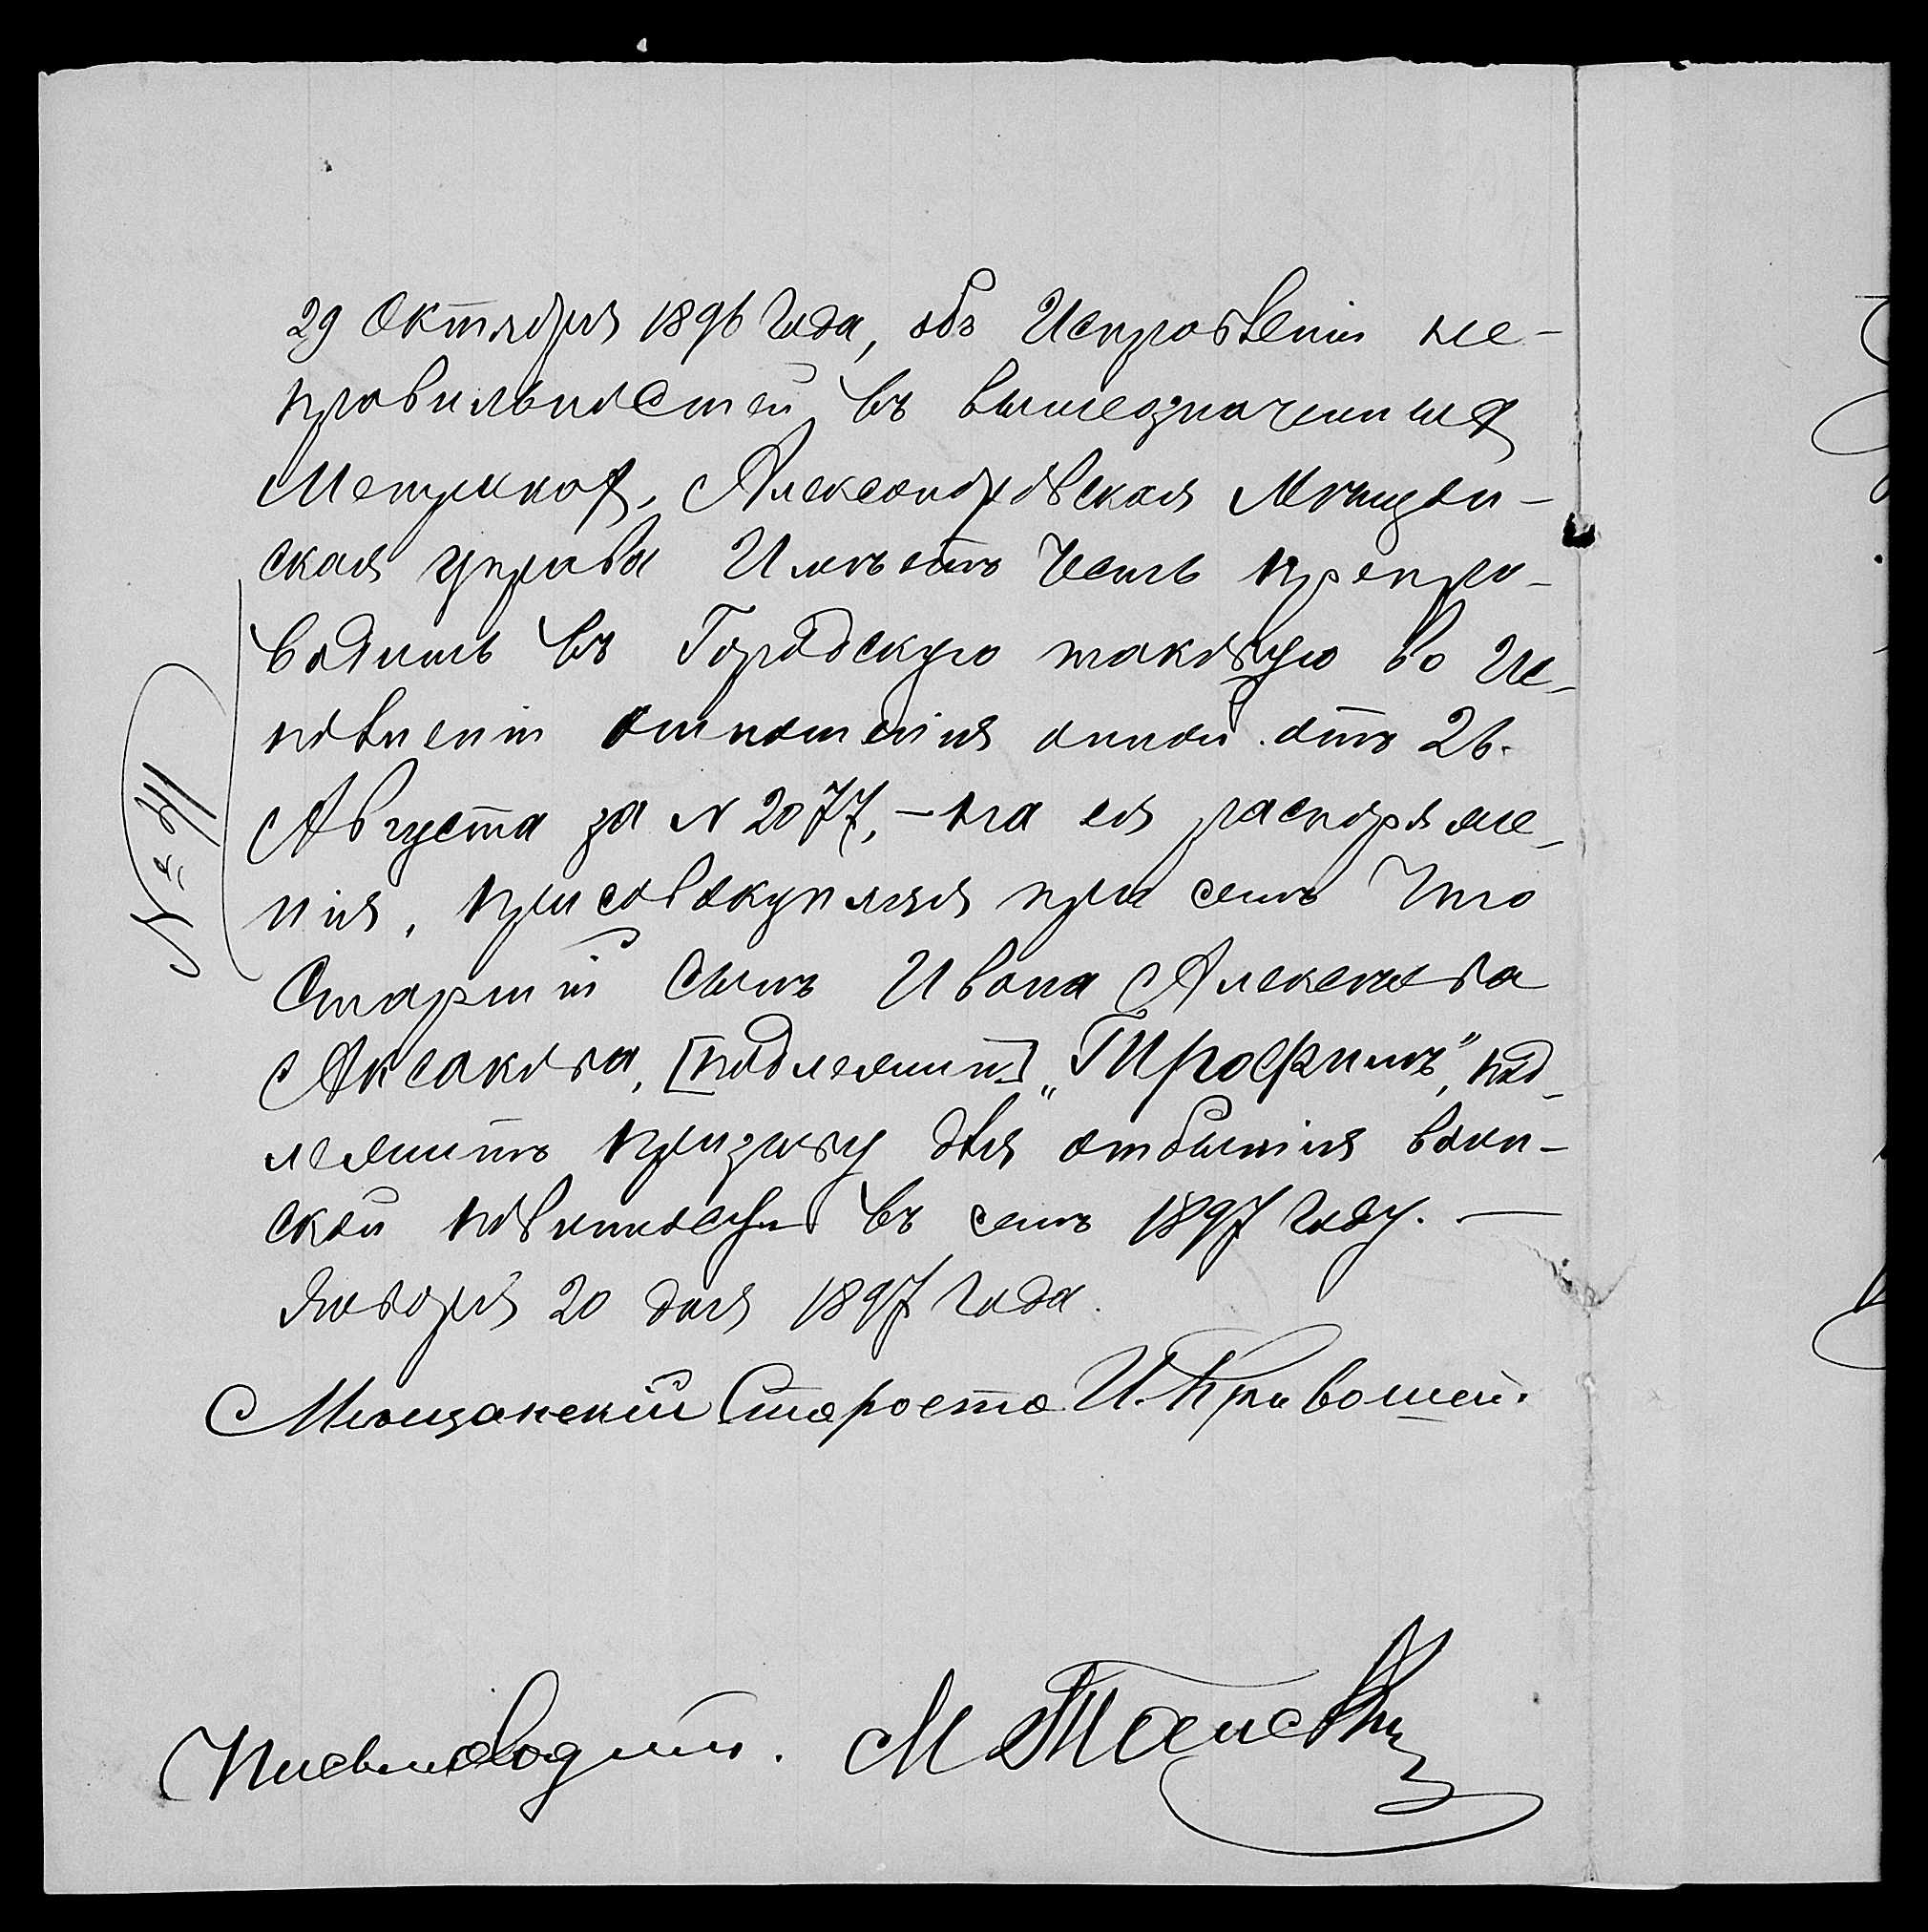 29 Октября 1896 года, объ Исправленіи не-
правильностей въ вышеозначенныхъ
Метрикахъ, Александровская Мещан-
ская управа Имѣетъ Честь препро-
водить въ Городскую таковую во Ис-
полненіи отношенія оной отъ 26.
Августа за N 2077, - на ея распоряже-
нія, присовокупляя при семъ Что
Старшій Сынъ Ивана Алексѣева
Аксакова, [подлежит] „Трофимъ“, под-
лежитъ призыву для отбытія воин-
ской повинности въ семъ 1897 году. —
Января 20 дня 1897 года.
Мѣщанскій Староста И. Кривошей.
Письмоводит. М